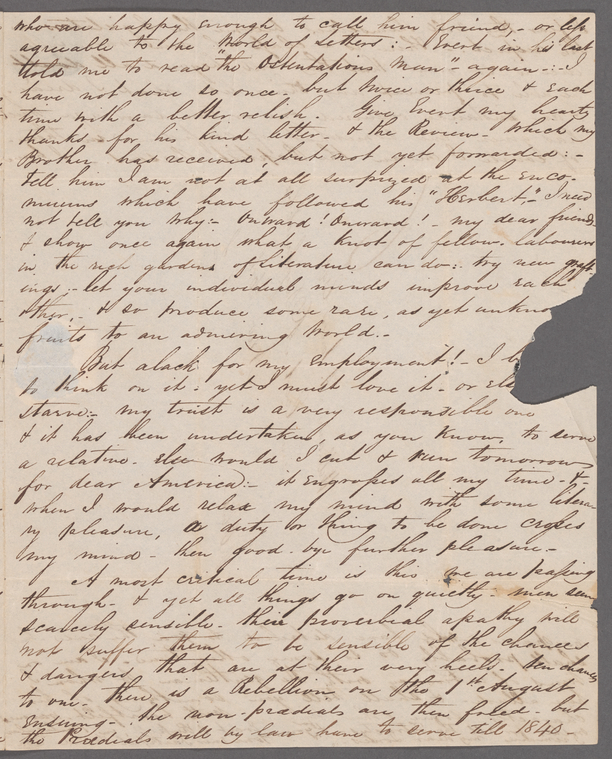 who are happy enough to call him friend - or life
agreeable to the "World of Letters: - Evert in his last
told me to read the Ostentatious Man" - again -: - I
have not done so once - but twice or thrice & each
time with a better relish. Give Evert my hearty
thanks for his kind letter - & the Review - which my
Brother has received, but not yet forwarded: -
tell him I am not at all surprized at the enco-
miums which have followed his "Herbert -" I need
not tell you why: - Onward! Onward! my dear friends
& show once again what a knot of fellow-labourers
in the rich gardens of literature can do: try new graft
ings: - let your individual minds improve each
other, - & so produce some rare, as yet unkno
fruits to an admiring World. -
But alack for my employment! - I
to think on it - yet I must love it - or else
starve: - my trust is a very responsible one
& it has been undertaken, as you know, to serve
a relative. Else would I cut & run tomorrow
for dear America: - it engrosses all my time - &
when I would relax my mind with some litera-
ry pleasure, a duty or thing to be done crosses
my mind - then good-bye further pleasure -
A most critical time is this we are passing
through - & yet all things go on quietly - men seem
scarcely sensible - their proverbial apathy will
not suffer them to be sensible of the chances
& dangers that are at their very heels. Ten chances
to one - there is a Rebellion on the 1st August
ensuing - the non-prædials are then freed - but
the Prædials will by law have to serve till 1840 -